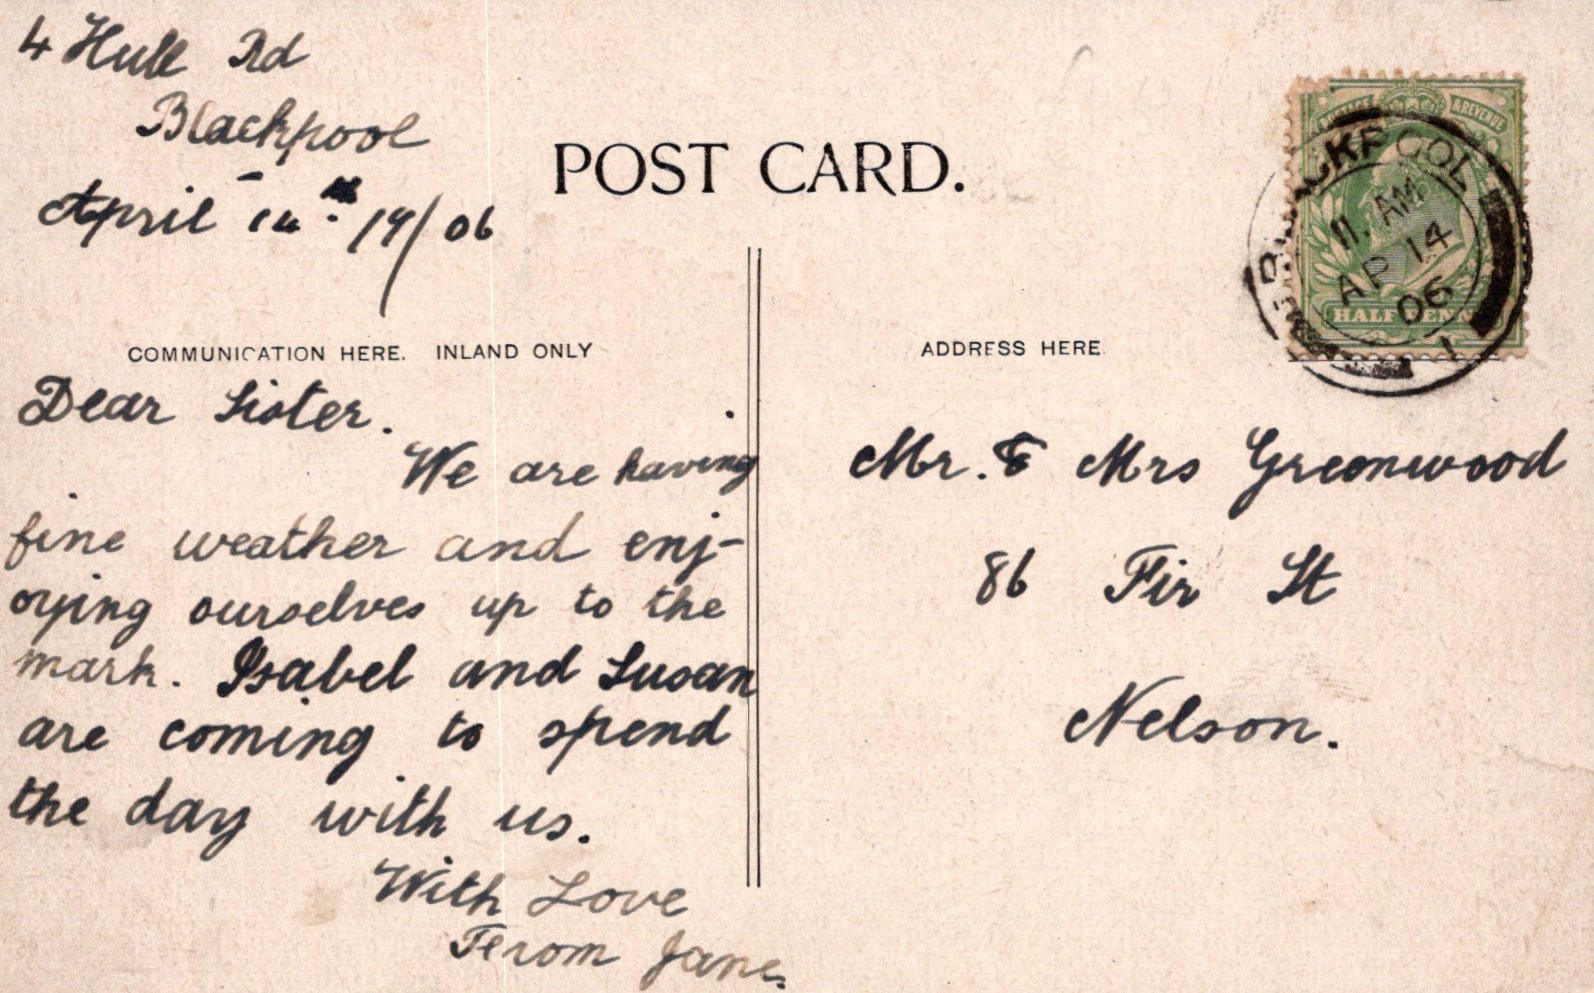 4 Hull Rd
Blackpool
April 14th 19/06
POST CARD.
COMMUNICATION HERE. INLAND ONLY
Dear Sister.
We are having
fine weather and enj-
oying ourselves up to the
mark. Isabel and Susan
are coming to spend
the day with us.
With Love
From Jane.
ADDRESS HERE
Mr. & Mrs Greenwood
86 Fir St
Nelson.
POSTAGE & REVENUE
HALFPENNY
BLACKPOOL
11. AM
AP 14
06
1